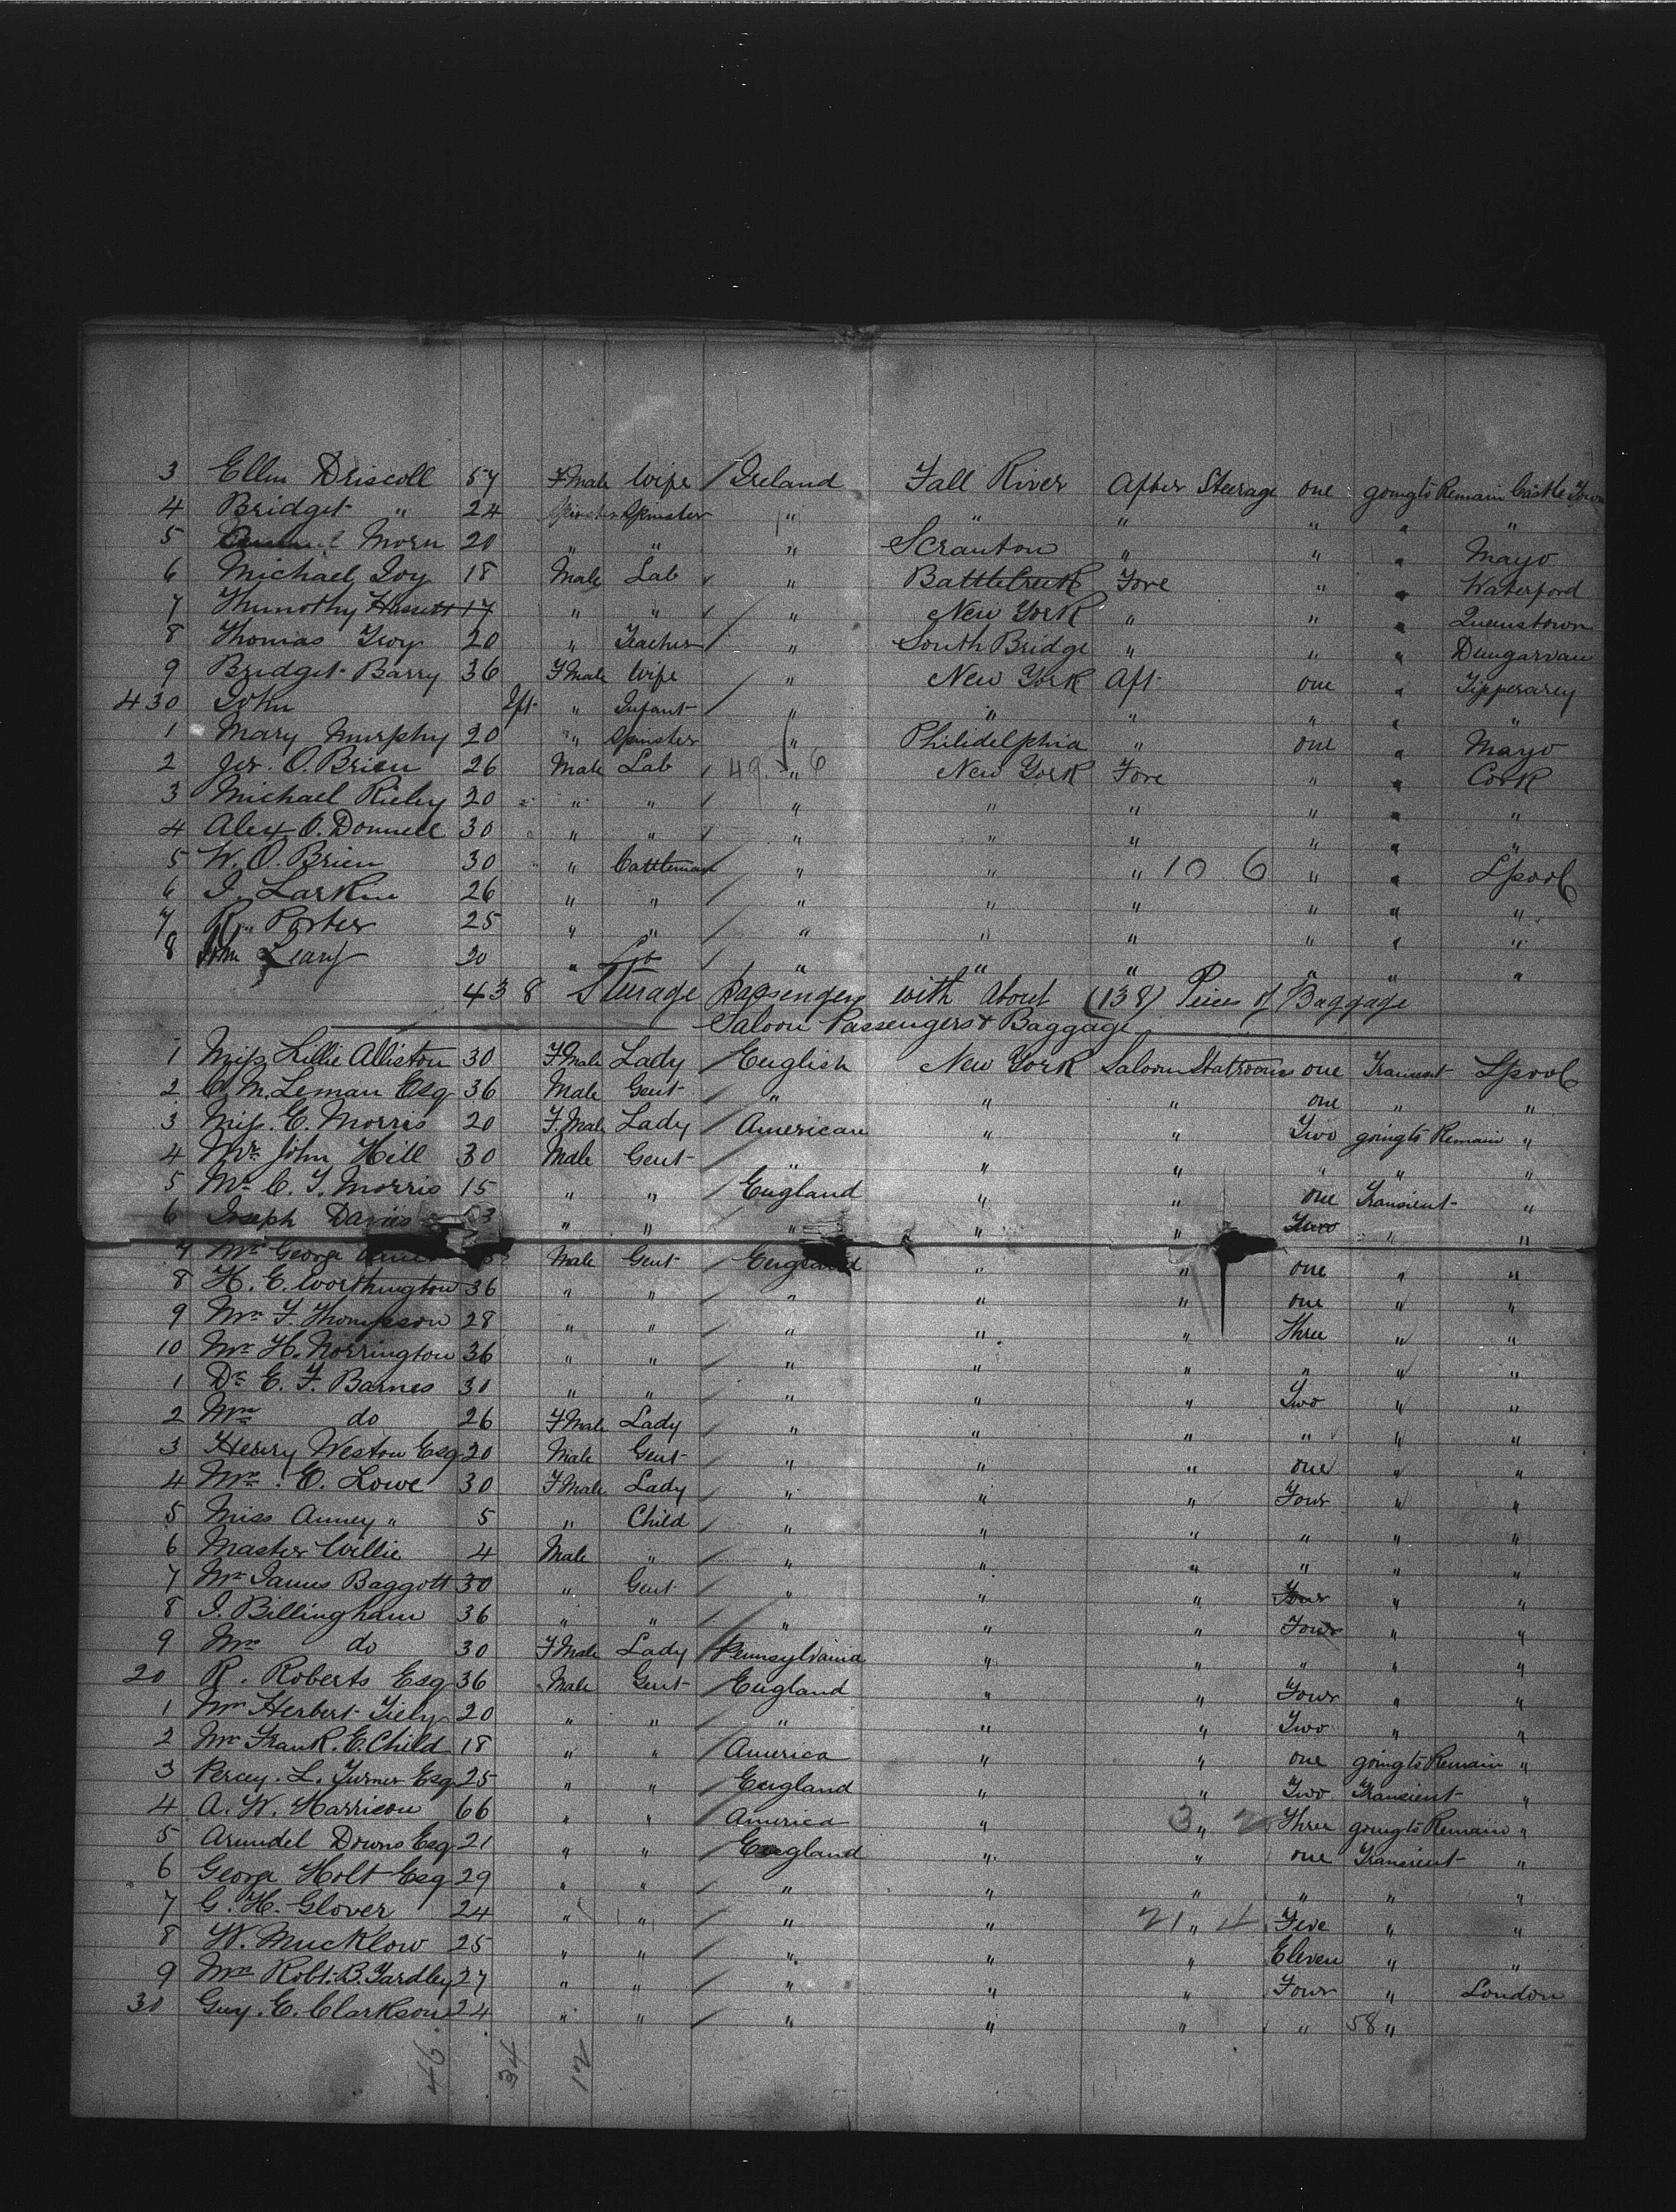 3 Ellen Driscoll 57 F.Male Wife / Ireland Fall River After Steerage one going to Remain Castle Town
4 Bridget " 24 Spinster Spinster " " " " " "
5 Morn 20 " " " Scranton " " " Mayo
6 Michael Ivy 18 Male Lab / " BattleCreek Fore " " Waterford
7 Thimothy Hassett 17 " " / " New York " " " Queenstown
8 Thomas Troy 20 " Teacher / " South Bridge " " " Dungarvan
9 Bridget Barry 36 F.Male Wife " New York Aft one " Tipperarey
430 John Ift " Infant / " " " " " "
1 Mary Murphy 20 " Spinster " Philidelphia " one " Mayo
2 Jer. O. Brien 26 Male Lab / 49 " 6 New York Fore " " Cork
3 Michael Rieley 20 " " / " " " " " "
4 Alex O. Donnell 30 " " / " " " " " "
5 W. O. Brien 30 " Cattleman / " " " 10 6 " " Lpool
6 I. Larkin 26 " " / " " " " " "
7 R. Porter 25 " " / " " " " " "
8 John Leary 20 " / " " " " " "
438 Steerage Passengers with About (138) Peices of Baggage
Saloon Passengers & Baggage
1 Miss Lillie Alliston 30 F.Male Lady / English New York Saloon Statrooms one Transent Lpool
2 C. M. Leman Esq 36 Male Gent " " " one " "
3 Miss. E. Morris 20 F.Male Lady / American " " Two going to Remain "
4 Mr. John Hill 30 Male Gent / " " " " " "
5 Mr. C. T. Morris 15 " " / England " " one Transient "
6 Joseph Davies 3 " " " " " Two " "
7 Mr. George Male Gent / England " " one " "
8 H. E. Worthington 36 " " / " " " one " "
9 Mr. F. Thompson 28 " " / " " " Three " "
10 Mr. H. Norrington 36 " " / " " " " " "
1 Dr. E. F. Barnes 30 " " / " " " Two " "
2 Mrs do 26 F.Male Lady / " " " " " "
3 Henry Weston Esq 20 Male Gent / " " " one " "
4 Mrs. E. Lowe 30 F.Male Lady / " " " Four " "
5 Miss Anney " 5 " Child / " " " " " "
6 Master Willie 4 Male " / " " " " " "
7 Mr James Baggott 30 " Gent / " " " Four " "
8 I. Billingham 36 " " / " " " Four " "
9 Mrs do 30 F.Male Lady / Pennsylvania " " " " "
20 R. Roberts Esq 36 Male Gent / England " " Four " "
1 Mr Herbert Tiely 20 " " / " " " Two " "
2 Mr Frank. E. Child 18 " " / America " " one going to Remain "
3 Percey. L. Turner Esq 25 " " / England " " Two Transient "
4 A. W. Harrison 66 " " / America " 3 " 2 Three going to Remain "
5 Arundel Downs Esq 21 " " / England " " one Transient "
6 George Holt Esq 29 " " / " " " " " "
7 G. H. Glover 24 " " / " " 21 " 4 Five " "
8 W. Mucklow 25 " " / " " " Eleven " "
9 Mr Robt. B. Yardley 27 " " / " " " Four " London
30 Guy. E. Clarkson 24 " " / " " " " 58 "
46 34 12